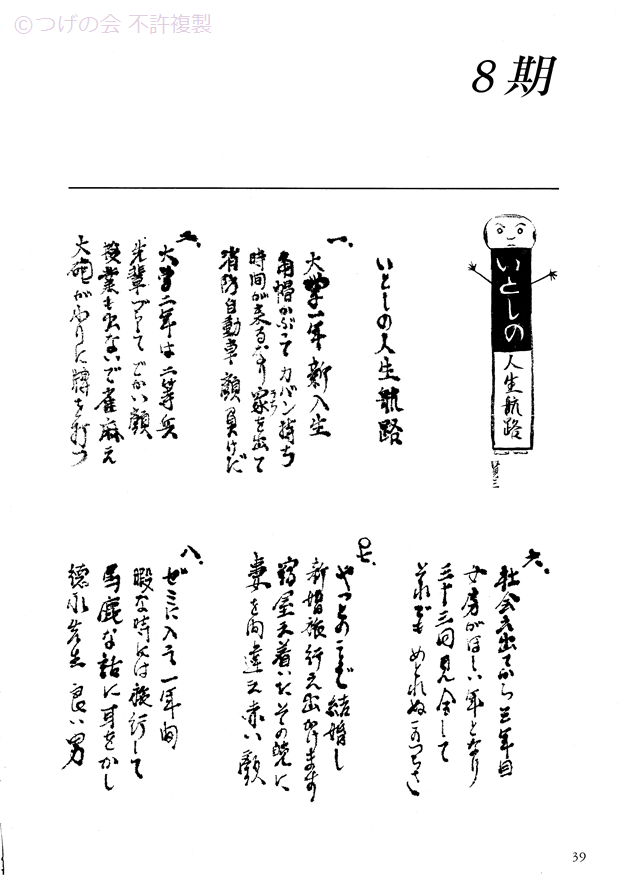 ©つげの会 不許複製
8期
いとしの
人生航路
いとしの人生航路
一、
大学一年新入生
角帽かぶってカバン持ち
時間が来るなり家を出て
うち
消防自動車顔負けだ
二、
大学二年は二等兵
先輩づらしてでかい顔
授業も出ないで雀麻え
大砲がわりに牌を打つ
六、
社会え出てから三年目
女房がほしい年となり
三十三回見合して
それでもめとれぬこのつらさ
七、
やっとのこって結婚し
新婚旅行え出かけます
宿屋え着いたその晩に
妻を間違え赤い顔
八、
ゼミに入って一年間
暇な時には旅行して
馬鹿な話に耳をかし
徳永先生良い男
39